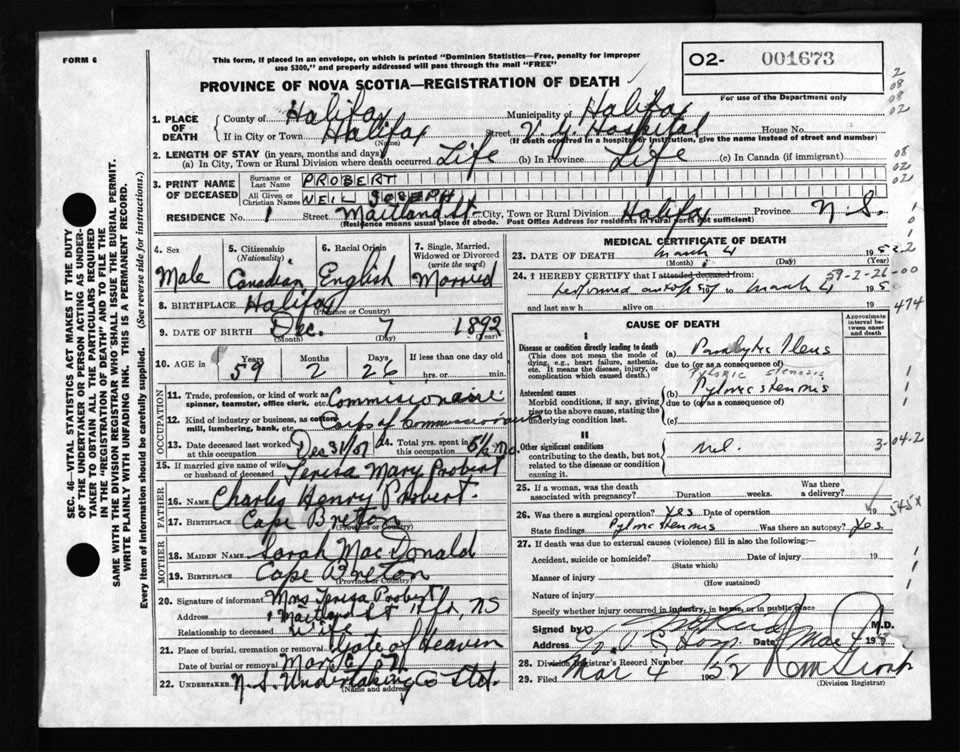 FORM 6
This form, if placed in an envelope, on which is printed "Dominion Statistics—Free, penalty for improper
use $300," and properly addressed will pass through the mail "FREE"
O2- 001673
For use of the Department only
PROVINCE OF NOVA SCOTIA—REGISTRATION OF DEATH
2
08
08
02
1. PLACE OF DEATH
County of Halifax Municipality of Halifax
If in City or Town Halifax Street V. G. Hospital House No.
(Name) (If death occurred in a hospital or institution, give the name instead of street and number)
2. LENGTH OF STAY (in years, months and days)
(a) In City, Town or Rural Division where death occurred Life (b) In Province Life (c) In Canada (if immigrant)
08
02
02
3. PRINT NAME OF DECEASED
Surname or Last Name PROBERT
All Given or Christian Names NEIL JOSEPH
RESIDENCE No. 1 Street Maitland St City, Town or Rural Division Halifax Province N.S.
(Residence means usual place of abode. Post Office Address for residents in rural parts not sufficient)
4. Sex Male
5. Citizenship (Nationality) Canadian
6. Racial Origin English
7. Single, Married, Widowed or Divorced (write the word) Married
8. BIRTHPLACE Halifax
(Province or Country)
9. DATE OF BIRTH Dec. 7 1892
(Month) (Day) (Year)
10. AGE in Years 59 Months 2 Days 26 If less than one day old hrs. or min.
OCCUPATION
11. Trade, profession, or kind of work as spinner, teamster, office clerk, etc. Commissionaire
12. Kind of industry or business, as cotton mill, lumbering, bank, etc. Corps of Commissionaires
13. Date deceased last worked at this occupation Dec 31/51
14. Total yrs. spent in this occupation 5½ Mo.
15. If married give name of wife or husband of deceased Teresa Mary Probert
FATHER
16. NAME Charles Henry Probert
17. BIRTHPLACE Cape Breton
(Province or Country)
MOTHER
18. MAIDEN NAME Sarah MacDonald
19. BIRTHPLACE Cape Breton
(Province or Country)
20. Signature of informant Mrs Teresa Probert
Address 1 Maitland St Hfx, NS
Relationship to deceased Wife
21. Place of burial, cremation or removal Gate of Heaven
Date of burial or removal Mar 6
22. UNDERTAKER N.S. Undertaking Co Ltd.
(Name and address)
MEDICAL CERTIFICATE OF DEATH
23. DATE OF DEATH March 4 1952
(Month) (Day) (Year)
24. I HEREBY CERTIFY that I attended deceased from:
59-2-26-00
performed autopsy 19 to March 4 195
and last saw h alive on 19
474
CAUSE OF DEATH
Approximate interval between onset and death
I
Disease or condition directly leading to death
(This does not mean the mode of dying, e.g., heart failure, asthenia, etc. It means the disease, injury, or complication which caused death.)
(a) Paralytic Ileus
due to (or as a consequence of)
PYLORIC stenosis
Antecedent causes
Morbid conditions, if any, giving rise to the above cause, stating the underlying condition last.
(b) Pyloric stenosis
due to (or as a consequence of)
(c)
II
Other significant conditions
contributing to the death, but not related to the disease or condition causing it.
nil.
3-04-2
25. If a woman, was the death associated with pregnancy? Duration weeks. Was there a delivery?
26. Was there a surgical operation? Yes Date of operation 19
545x
State findings Pyloric stenosis Was there an autopsy? Yes
27. If death was due to external causes (violence) fill in also the following:
Accident, suicide or homicide? Date of injury 19
(State which)
Manner of injury
(How sustained)
Nature of injury
Specify whether injury occurred in industry, in home, or in public place
Signed by M.D.
Address V. G. Hosp Date Mar 4 19
28. Division Registrar's Record Number
29. Filed Mar 4 1952
(Division Registrar)
SEC. 46—VITAL STATISTICS ACT MAKES IT THE DUTY
OF THE UNDERTAKER OR PERSON ACTING AS UNDER-
TAKER TO OBTAIN ALL THE PARTICULARS REQUIRED
IN THE "REGISTRATION OF DEATH" AND TO FILE THE
SAME WITH THE DIVISION REGISTRAR WHO SHALL ISSUE THE BURIAL PERMIT.
WRITE PLAINLY WITH UNFADING INK. THIS IS A PERMANENT RECORD.
Every item of information should be carefully supplied. (See reverse side for instructions.)